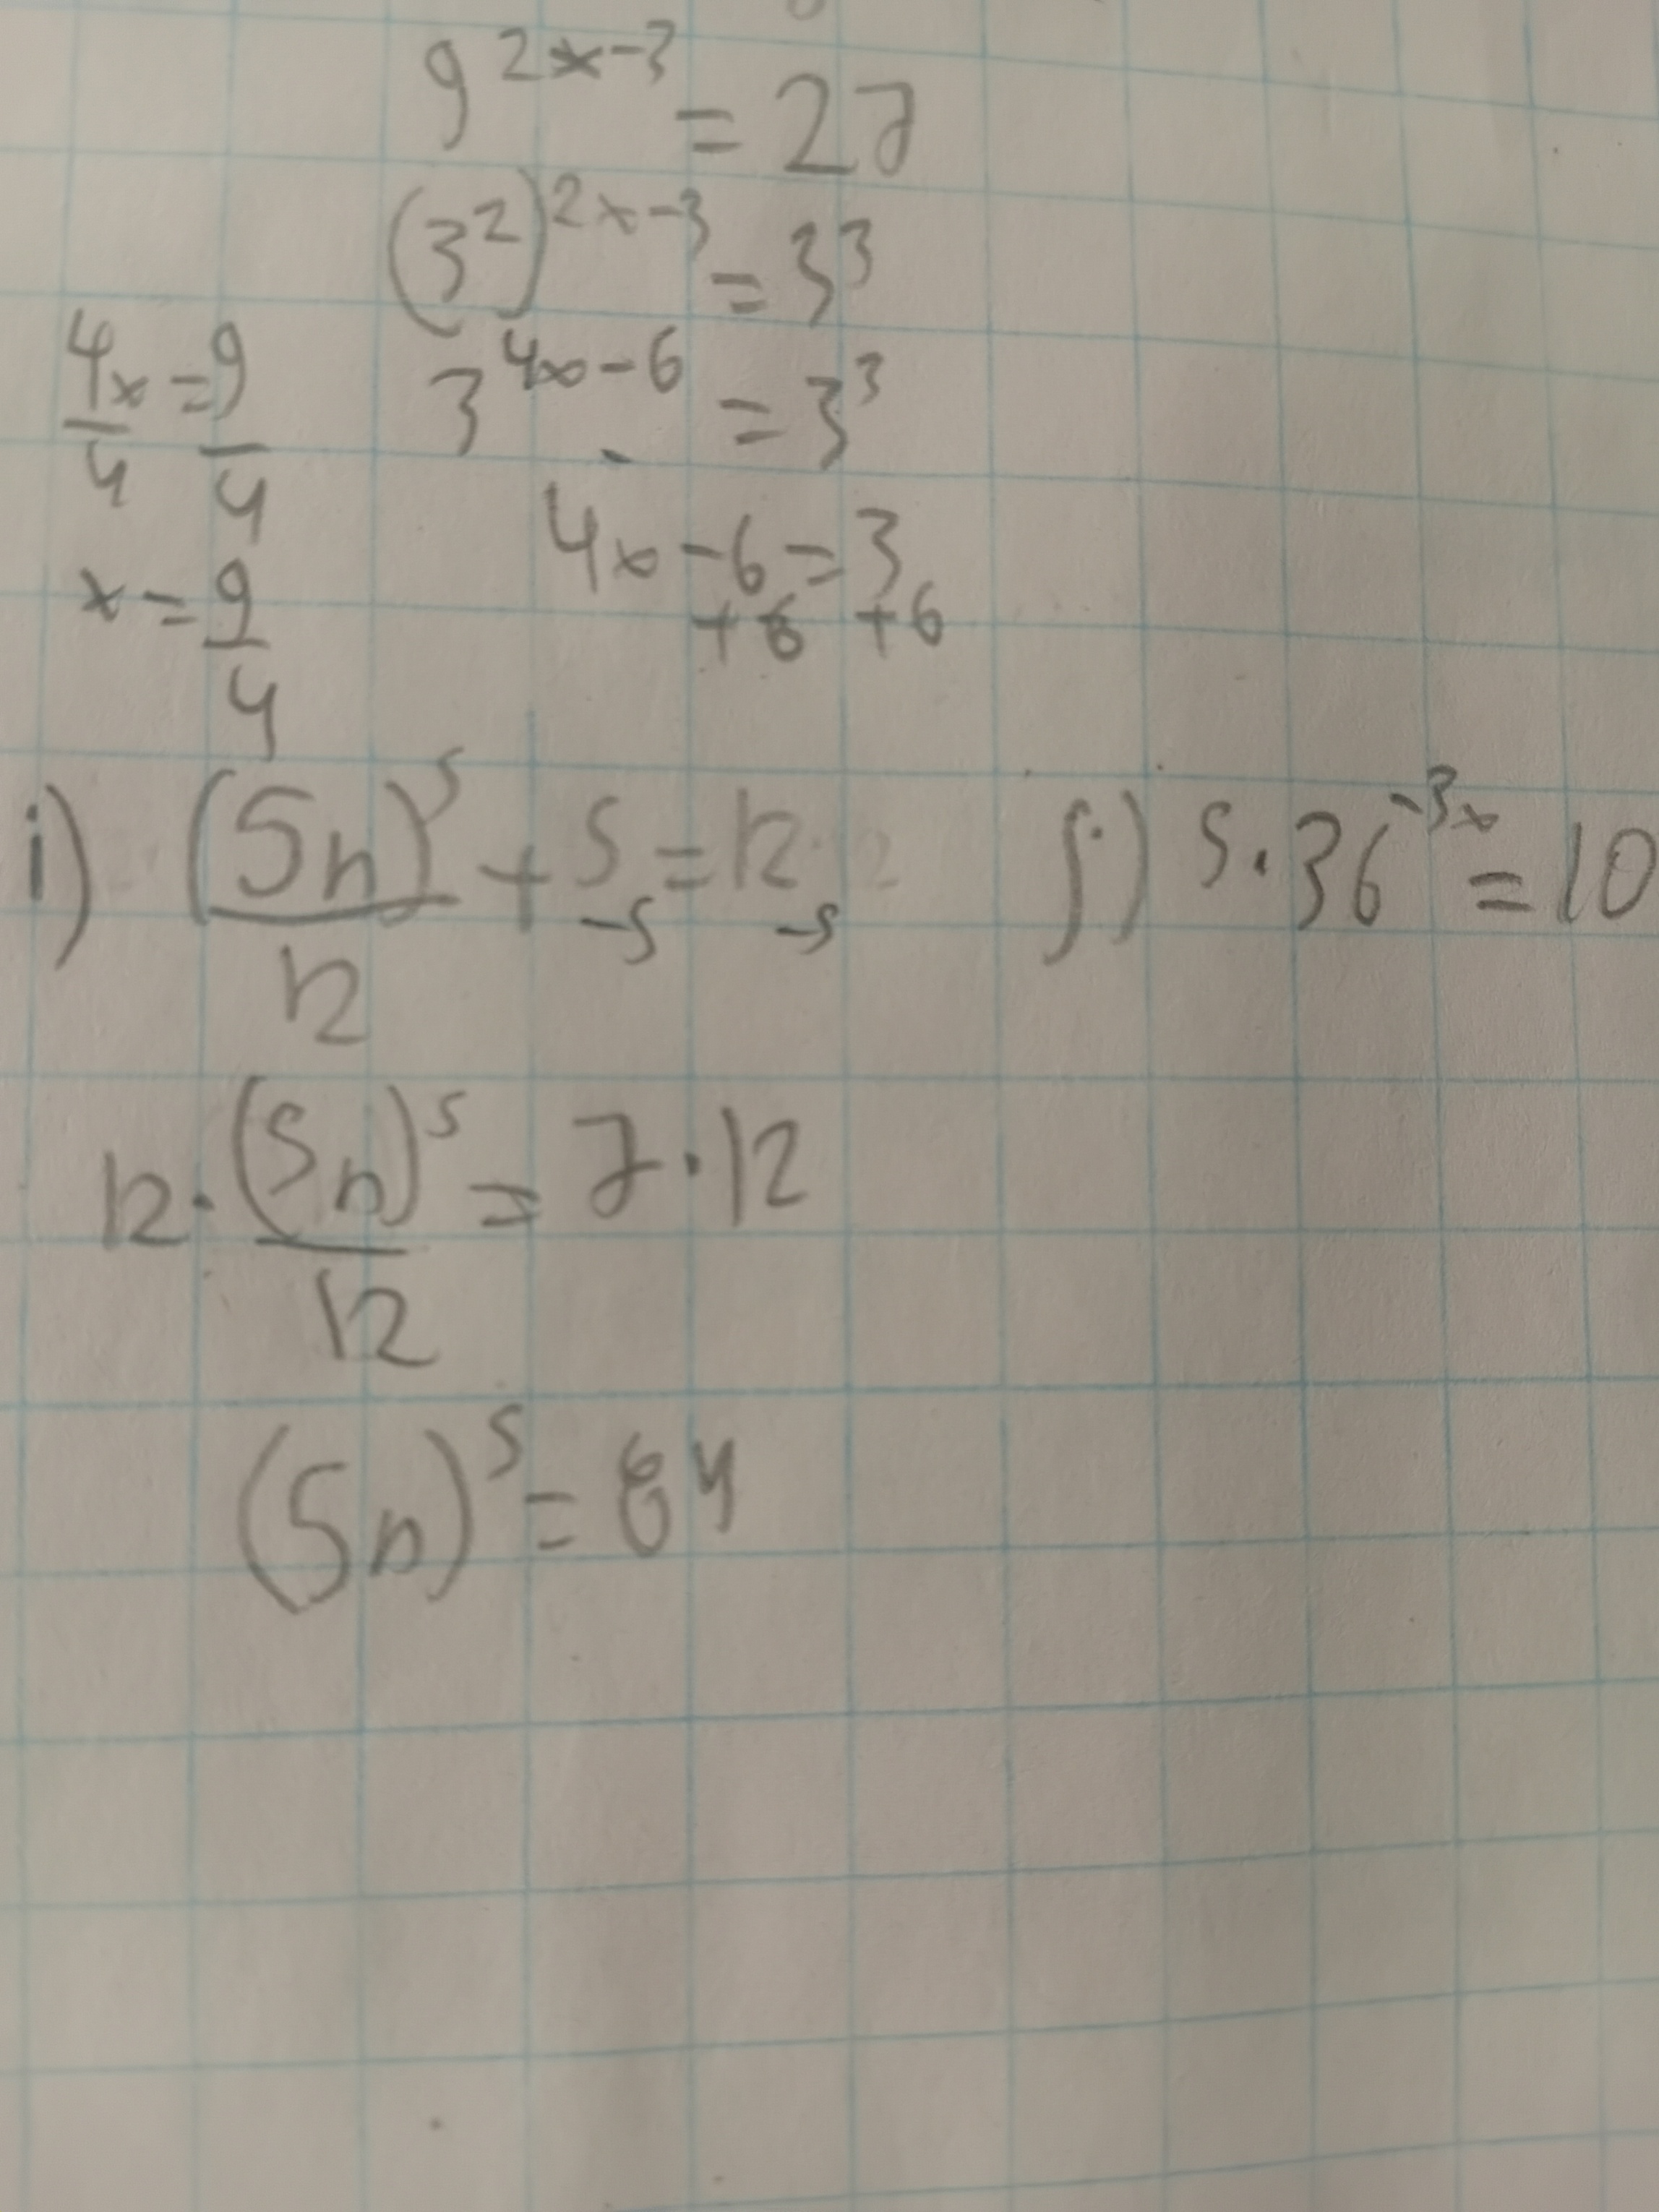 9^(2x-3) = 27
(3^2)^(2x-3) = 3^3
3^(4x-6) = 3^3
4x-6=3
+6 +6
4x/4 = 9/4
x = 9/4
i) (5n)^5/12 + 5 = 12
-5 -5
12·(5n)^5/12 = 7·12
(5n)^5 = 84
j) 5·36^(-3x) = 10